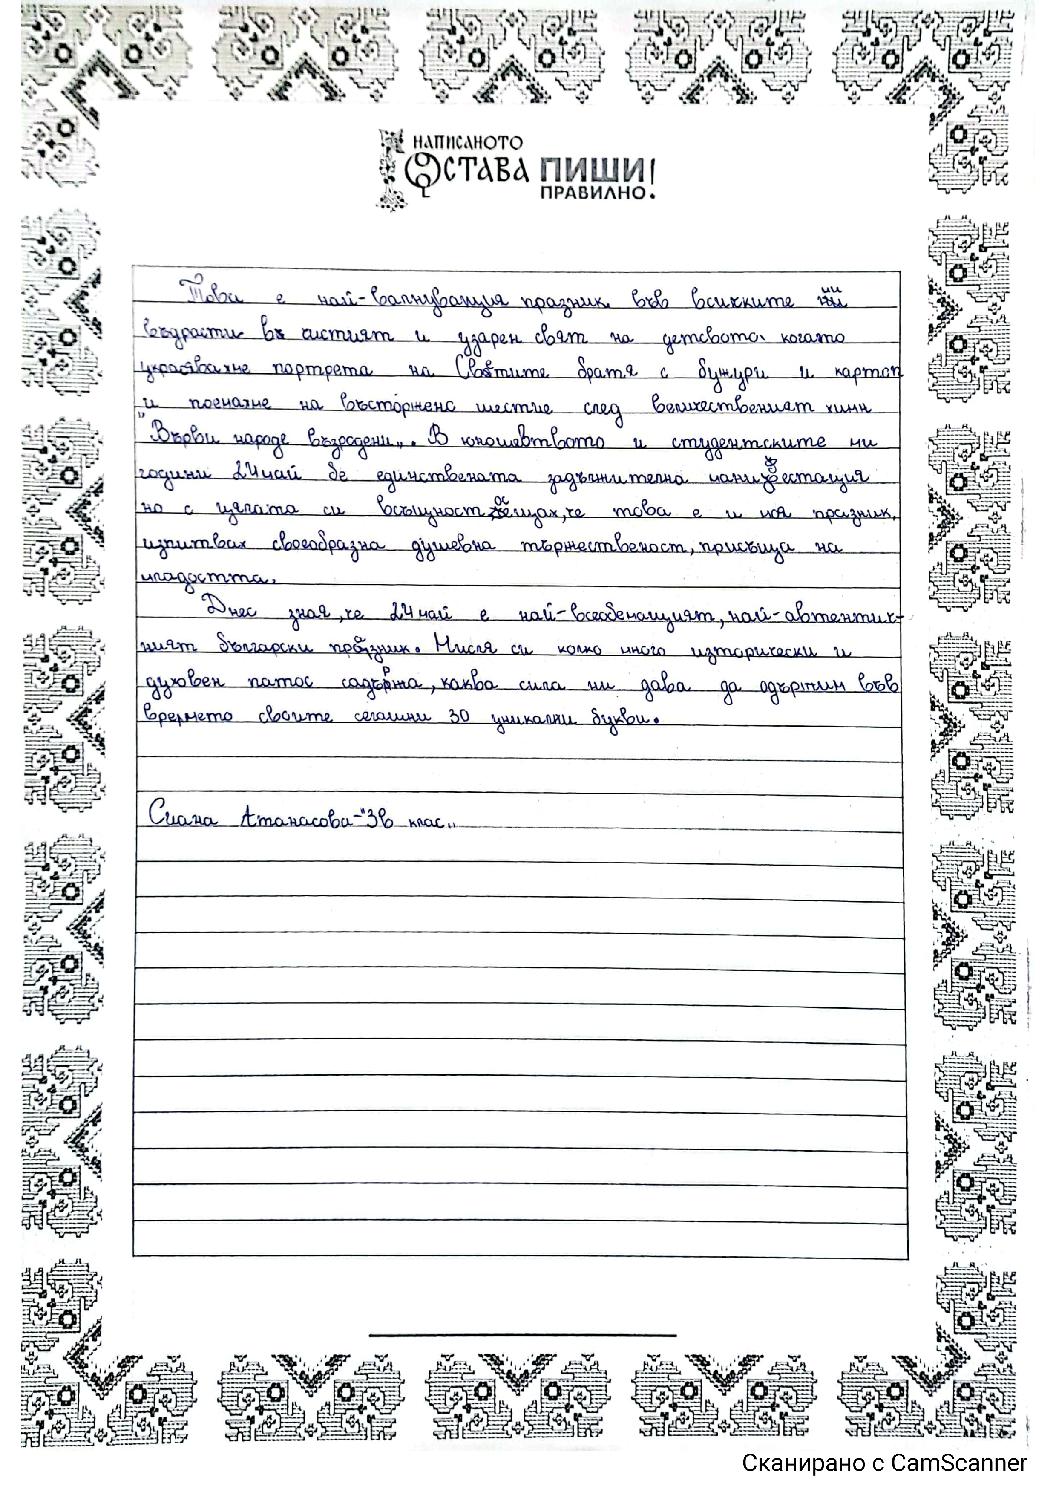 НАПИСАНОТО
ОСТАВА ПИШИ!
ПРАВИЛНО!
Това е най-валнуващия празник във всичките ни
въздрасти в чистият и узарен свят на детовото, когато
украсявахме портрета на Светите братя с бужури и картон
и поемахме на въсторжено шествие след величественият химн
"Върви народе възродени„. В юношевството и студентските ми
години 24 май бе единствената задължителна манифестация
но с цялата си всъщност осещах, че това е и моя празник,
изпитвах своеобразна душевна тържественост, присъща на
младостта.
Днес зная, че 24 май е най-всеобемащият, най-автентич-
ният български празник. Мисля си колко много изторически и
духовен патос садържа, каква сила ни дава да одържим във
времето своите сегашни 30 уникални букви.
Сиана Атанасова-"3в клас„
Сканирано с CamScanner